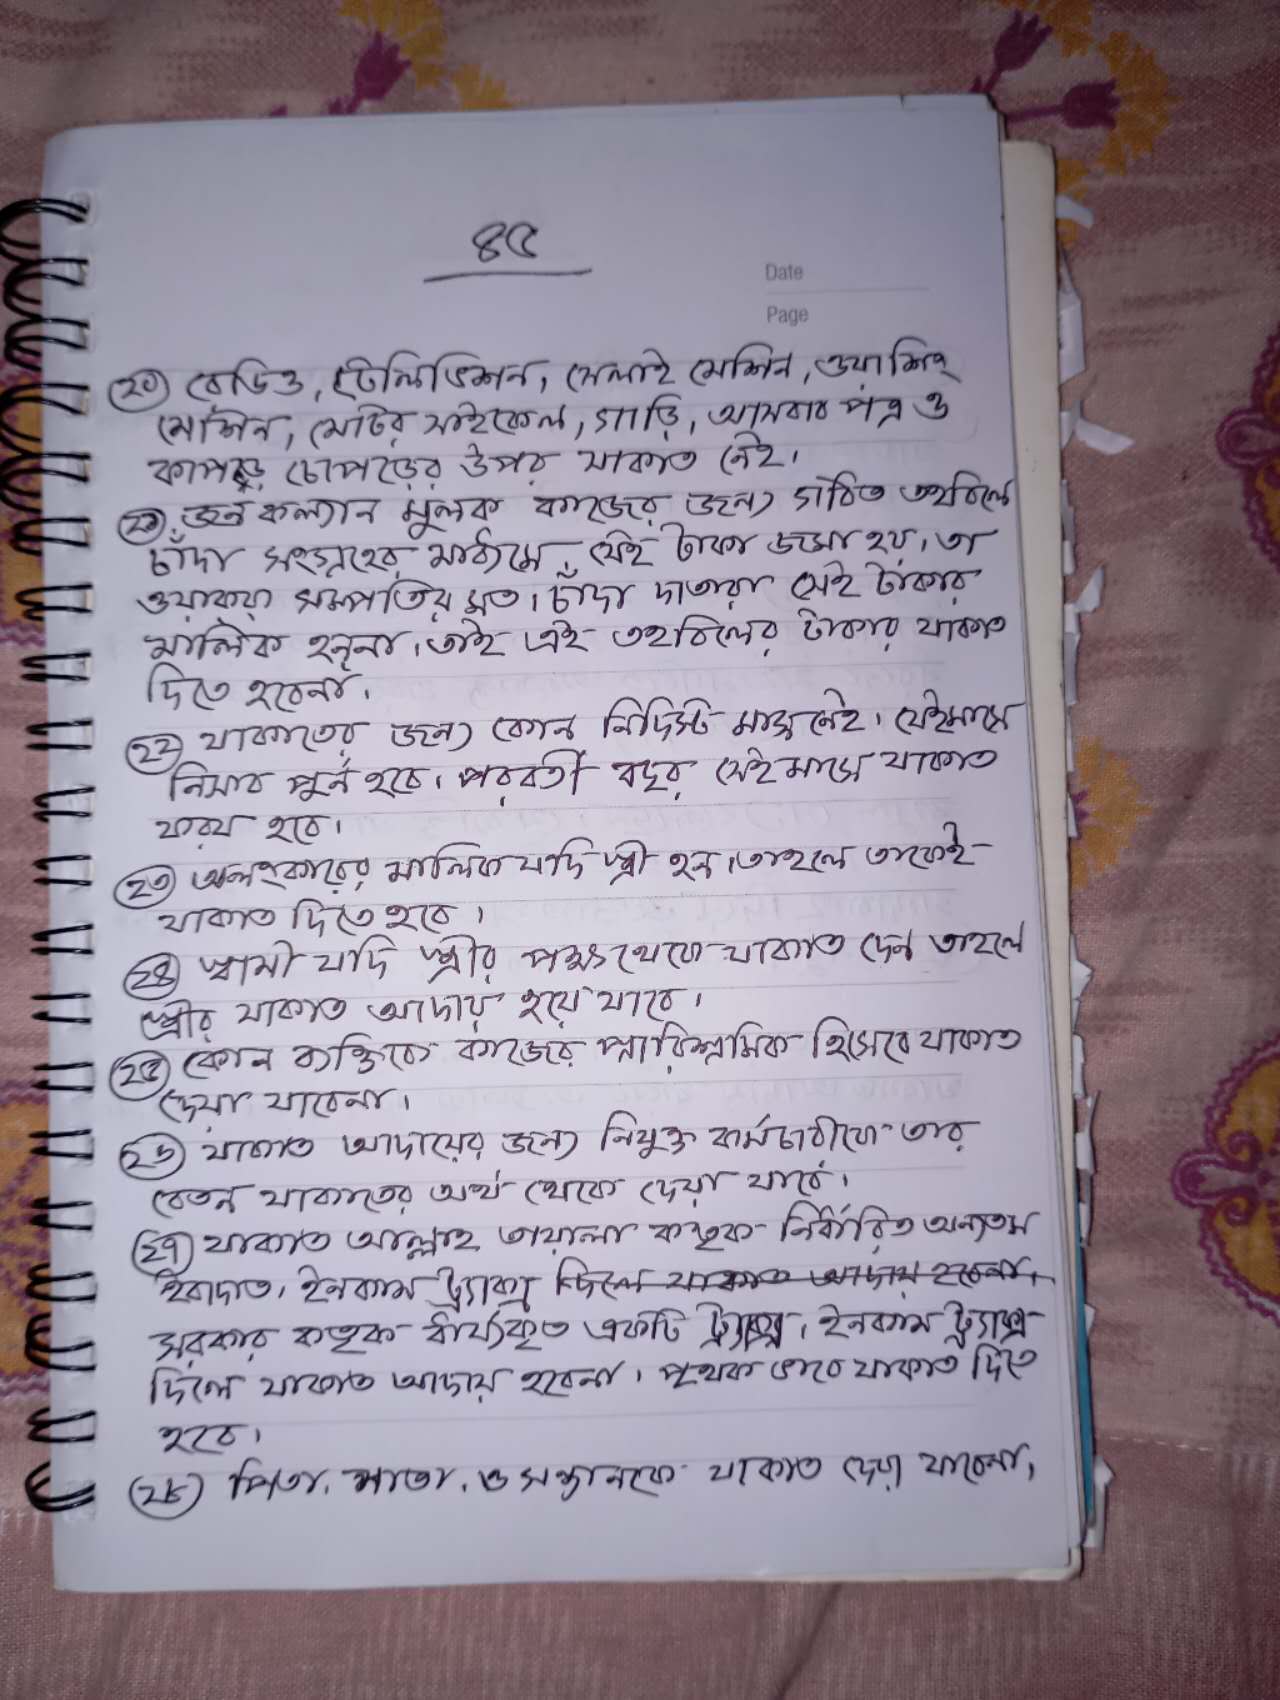 ৪৫
Date
Page
(২০) রেডিও, টেলিভিশন, সেলাই মেশিন, ওয়াশিং
মেশিন, মোটর সাইকেল, গাড়ি, আসবাব পত্র ও
কাপড় চোপড়ের উপর যাকাত নেই।
(২১) জন কল্যান মুলক কাজের জন্য গঠিত তহবিলে
চাঁদা সংগ্রহের মাধ্যমে যেই টাকা জমা হয়, তা
ওয়াকফ সম্পত্তির মত। চাঁদা দাতারা সেই টাকার
মালিক হননা। তাই এই তহবিলের টাকার যাকাত
দিতে হবেনা।
(২২) যাকাতের জন্য কোন নির্দিস্ট মাস নেই। যেইমাসে
নিসাব পুর্ন হবে। পরবর্তী বছর সেইমাসে যাকাত
ফরয হবে।
(২৩) অলংকারের মালিক যদি স্ত্রী হন। তাহলে তাকেই
যাকাত দিতে হবে।
(২৪) স্বামী যদি স্ত্রীর পক্ষ থেকে যাকাত দেন তাহলে
স্ত্রীর যাকাত আদায় হয়ে যাবে।
(২৫) কোন ব্যক্তিকে কাজের পারিশ্রমিক হিসেবে যাকাত
দেয়া যাবেনা।
(২৬) যাকাত আদায়ের জন্য নিযুক্ত কর্মচারীকে তার
বেতন যাকাতের অর্থ থেকে দেয়া যাবে।
(২৭) যাকাত আল্লাহ তায়ালা কতৃক নির্ধারিত অন্যতম
ইবাদাত, ইনকাম ট্র্যাক্স দিলে যাকাত আদায় হবেনা।
সরকার কতৃক ধার্য্যকৃত একটি ট্র্যাক্স। ইনকাম ট্র্যাক্স
দিলে যাকাত আদায় হবেনা। পৃথক ভাবে যাকাত দিতে
হবে।
(২৮) পিতা, মাতা, ও সন্তানকে যাকাত দেয়া যাবেনা,